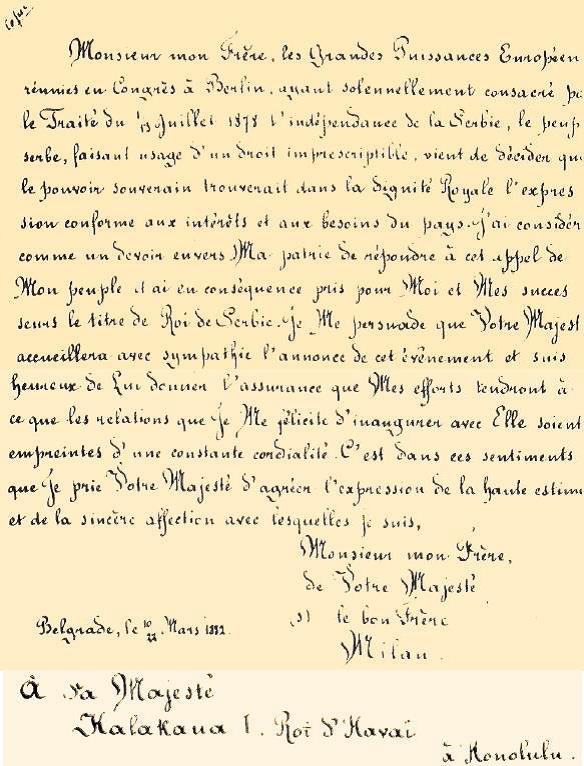 Copie
Monsieur mon Frère, les Grandes Puissances Européen
réunies en Congrès à Berlin, ayant solennellement consacré pa
le Traité du 1/13 Juillet 1878 l'indépendance de la Serbie, le peup
serbe, faisant usage d'un droit imprescriptible, vient de décider qu
le pouvoir souverain trouverait dans la dignité Royale l'expres
sion conforme aux intérêts et aux besoins du pays. J'ai considér
comme un devoir envers Ma patrie de répondre à cet appel de
Mon peuple et ai en conséquence pris pour Moi et Mes succes
seurs le titre de Roi de Serbie. Je Me persuade que Votre Majest
accueillera avec sympathie l'annonce de cet évènement et suis
heureux de Lui donner l'assurance que Mes efforts tendront à
ce que les relations que Je Me félicite d'inaugurer avec Elle soient
empreintes d'une constante cordialité. C'est dans ces sentiments
que Je prie Votre Majesté d'agréer l'expression de la haute estim
et de la sincère affection avec lesquelles je suis,
Monsieur mon Frère,
de Votre Majesté
s) le bon Frère
Belgrade, le 10/22 Mars 1882.
Milan.
À Sa Majesté
Kalakaua I. Roi d'Havaï
à Honolulu.